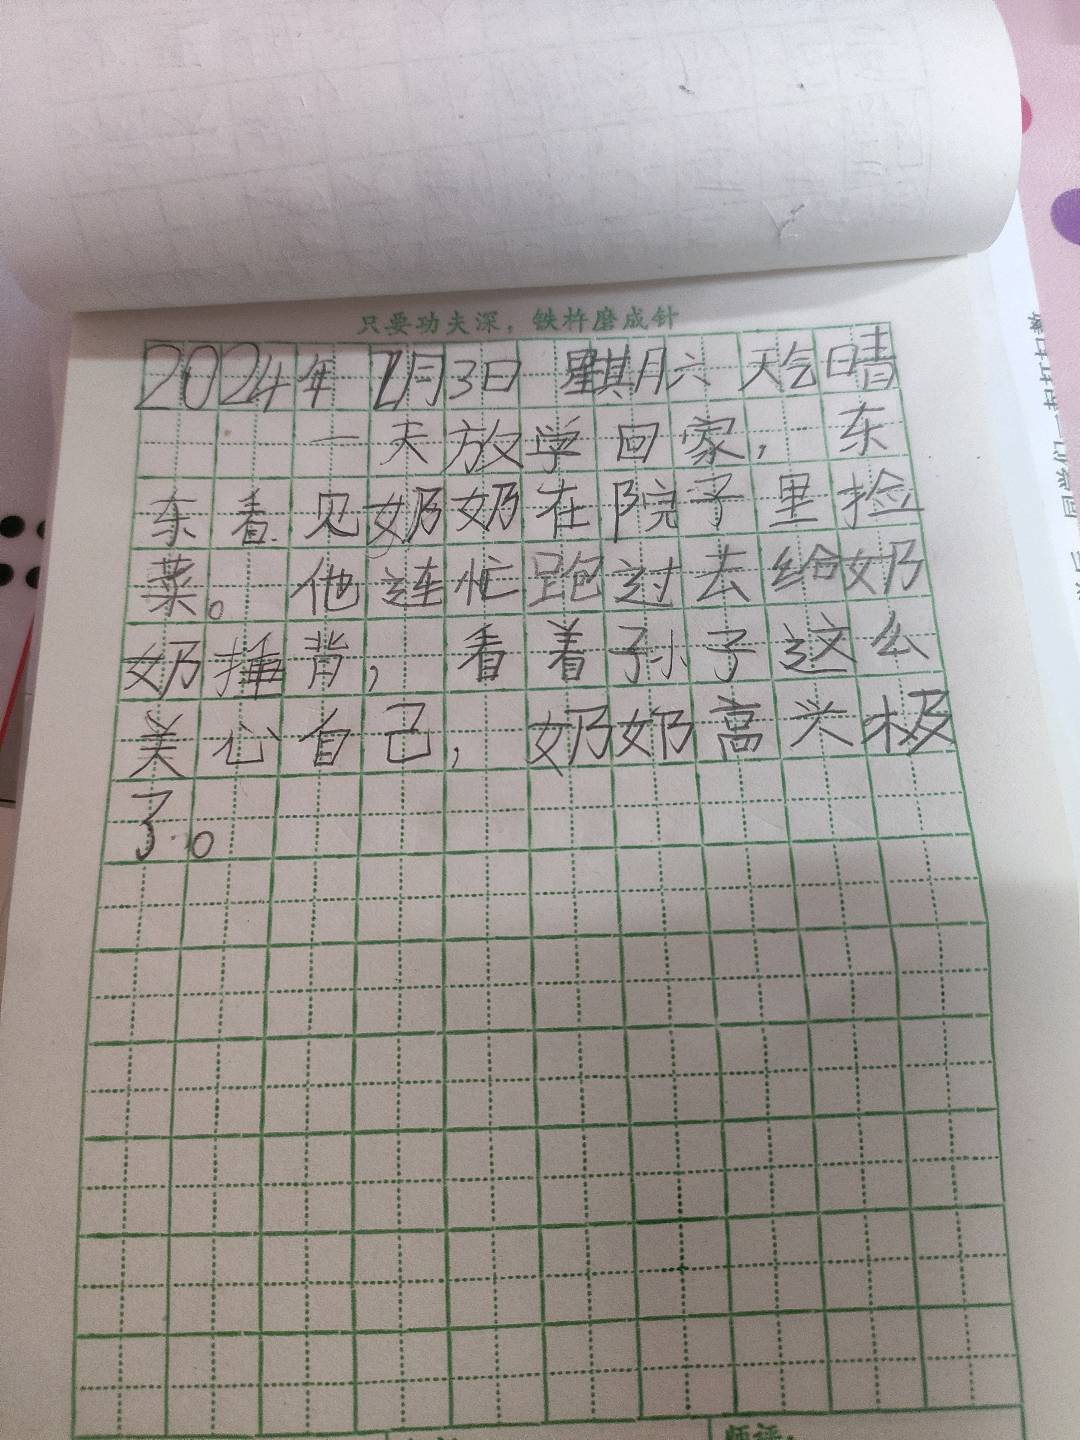 只要功夫深，铁杵磨成针
2024年2月3日 星期六 天气晴
一天放学回家，东
东看见奶奶在院子里捡
菜。他连忙跑过去给奶
奶捶背，看着孙子这么
关心自己，奶奶高兴极
了。
师评：